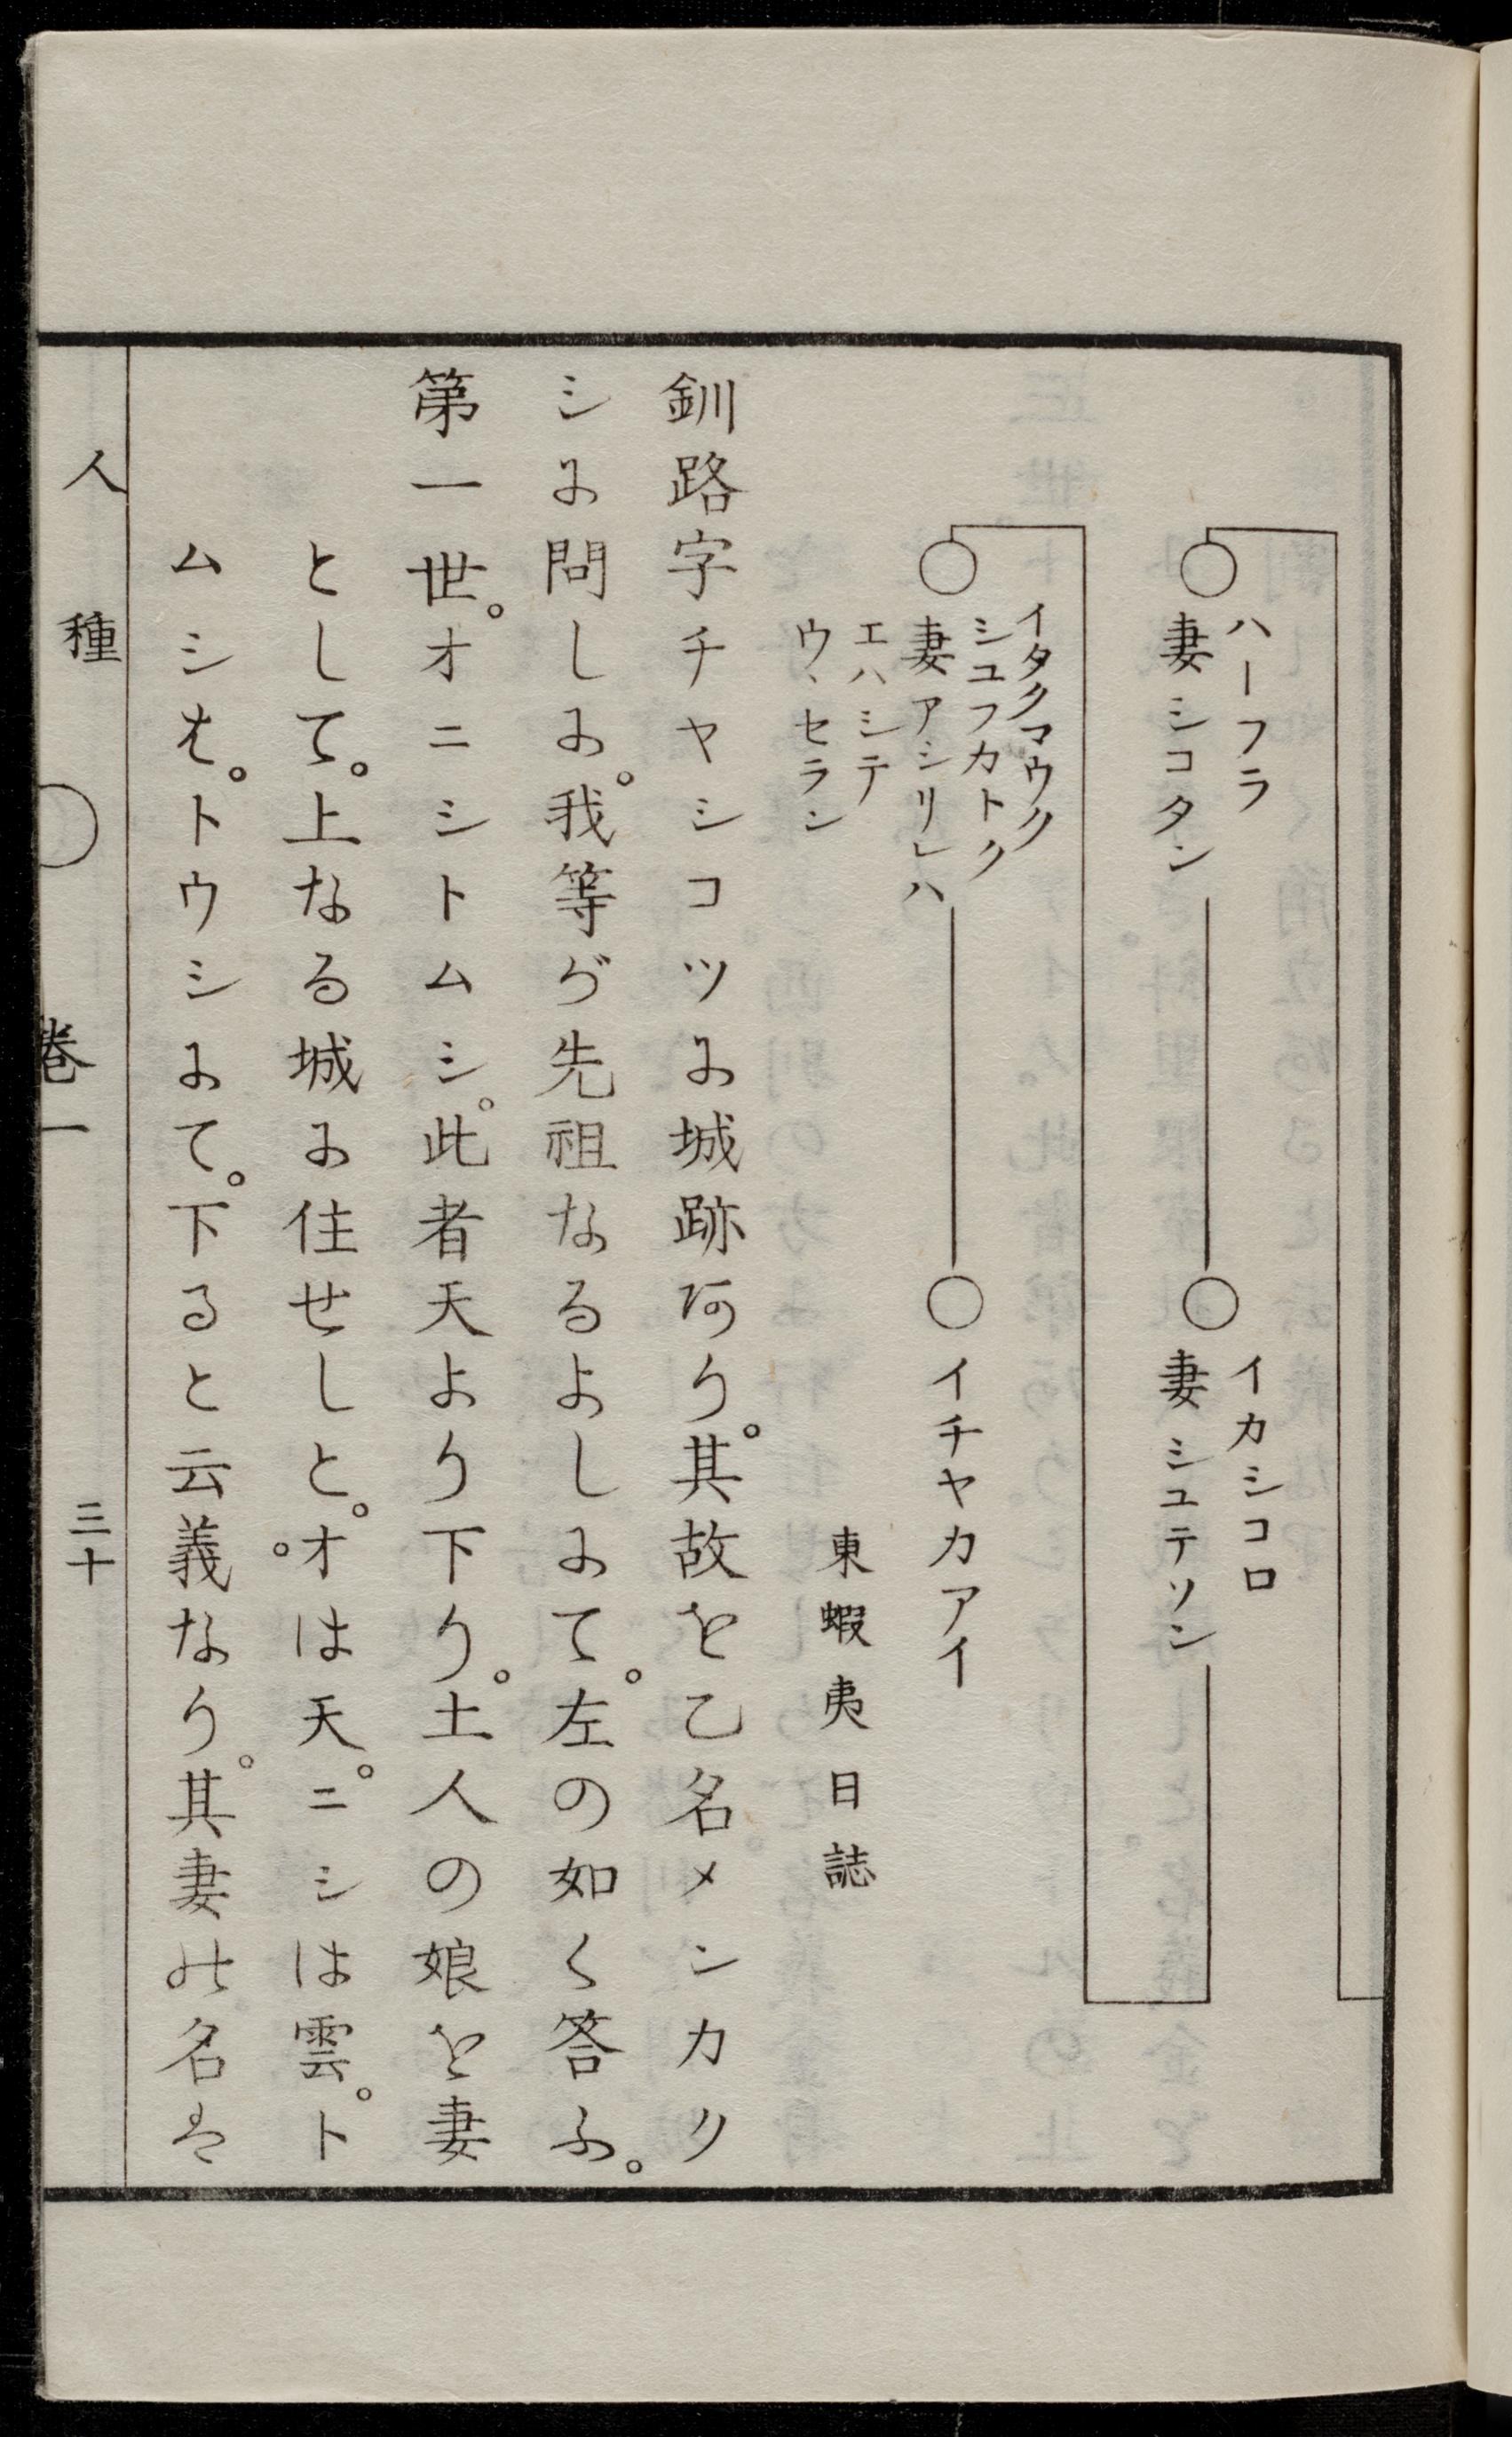 ハーフラ
妻シコタン
イカシコロ
妻シユテソン
イタクマウク
シユフカトク
妻アシリレハ
エハシテ
ウヽセラン
イチヤカアイ
東蝦夷日誌
釧路字チヤシコツに城跡あり。其故を乙名メンカク
シに問しに。我等が先祖なるよしにて。左の如く答ふ。
第一世。オニシトムシ。此者天より下り。土人の娘を妻
として。上なる城に住せしと。オは天。ニシは雲。ト
ムシは。トウシにて。下ると云義なり。其妻の名は
人種 ○ 巻一 三十